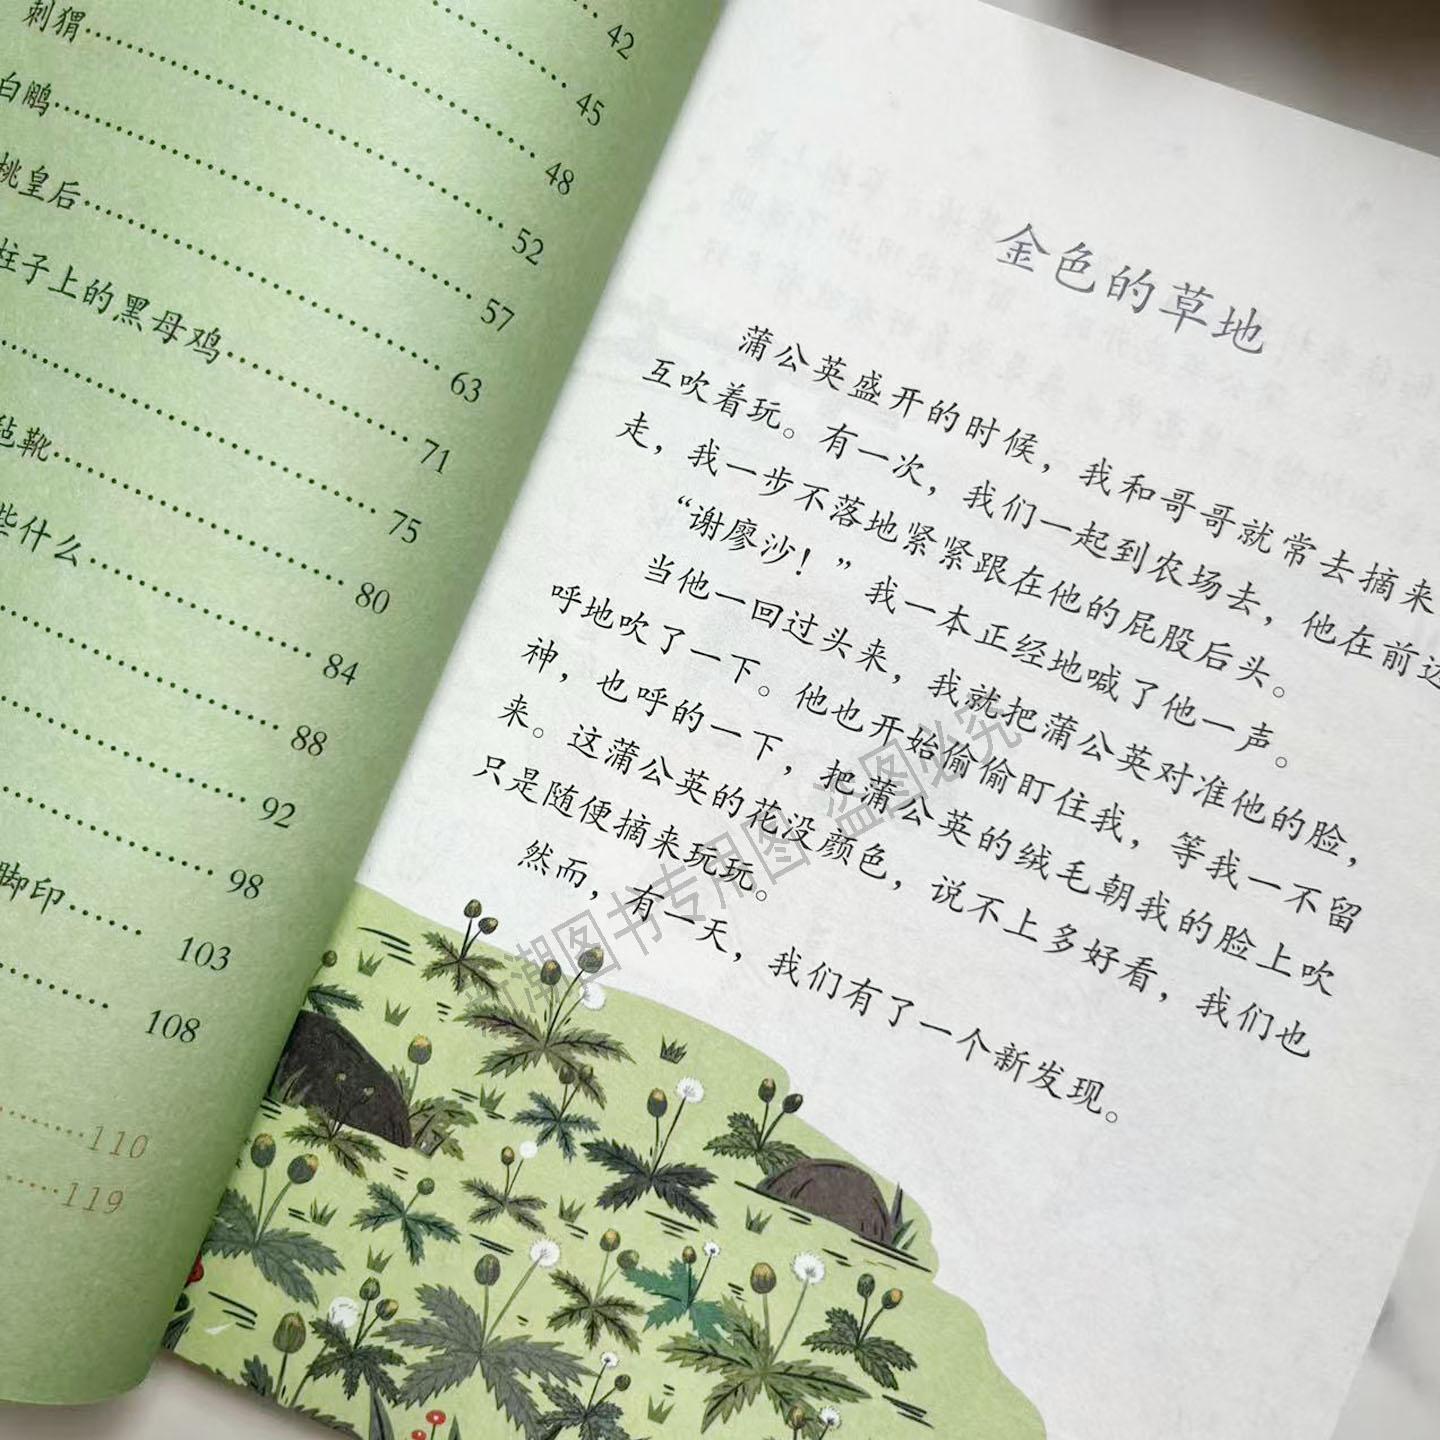 42
刺猬 45
白鹇 48
桃皇后 52
57
柱子上的黑母鸡 63
71
毡靴 75
些什么 80
84
88
92
98
脚印 103
108
110
119
金色的草地
蒲公英盛开的时候，我和哥哥就常去摘来
互吹着玩。有一次，我们一起到农场去，他在前边
走，我一步不落地紧紧跟在他的屁股后头。
“谢廖沙！”我一本正经地喊了他一声。
当他一回过头来，我就把蒲公英对准他的脸，
呼地吹了一下。他也开始偷偷盯住我，等我一不留
神，也呼的一下，把蒲公英的绒毛朝我的脸上吹
来。这蒲公英的花没颜色，说不上多好看，我们也
只是随便摘来玩玩。
然而，有一天，我们有了一个新发现。
潮图书专用图 盗图必究